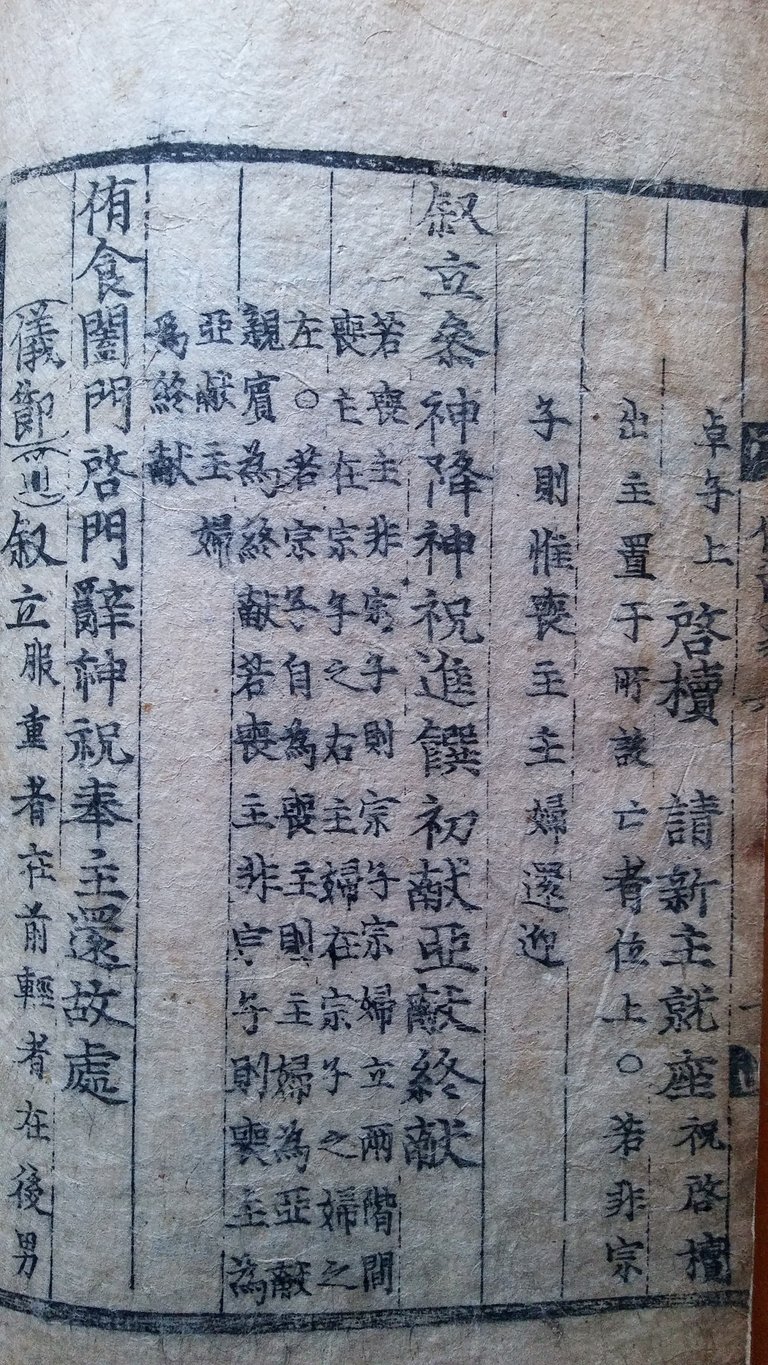 卓子上 啓櫝 請新主就座祝啓櫝
出主置于所設亡者位上○若非宗
子則惟喪主主婦還迎
叙立叅神降神祝進饌初献亞献終献
若喪主非宗子則宗子宗婦立兩階間
喪主在宗子之右主婦在宗子之婦之
左○若宗子自為喪主則主婦為亞献
親賓為終献若喪主非宗子則喪主為
亞献主婦
爲終献
侑食闔門啓門辭神祝奉主還故處
(儀節)叙立服重者在前輕者在後男